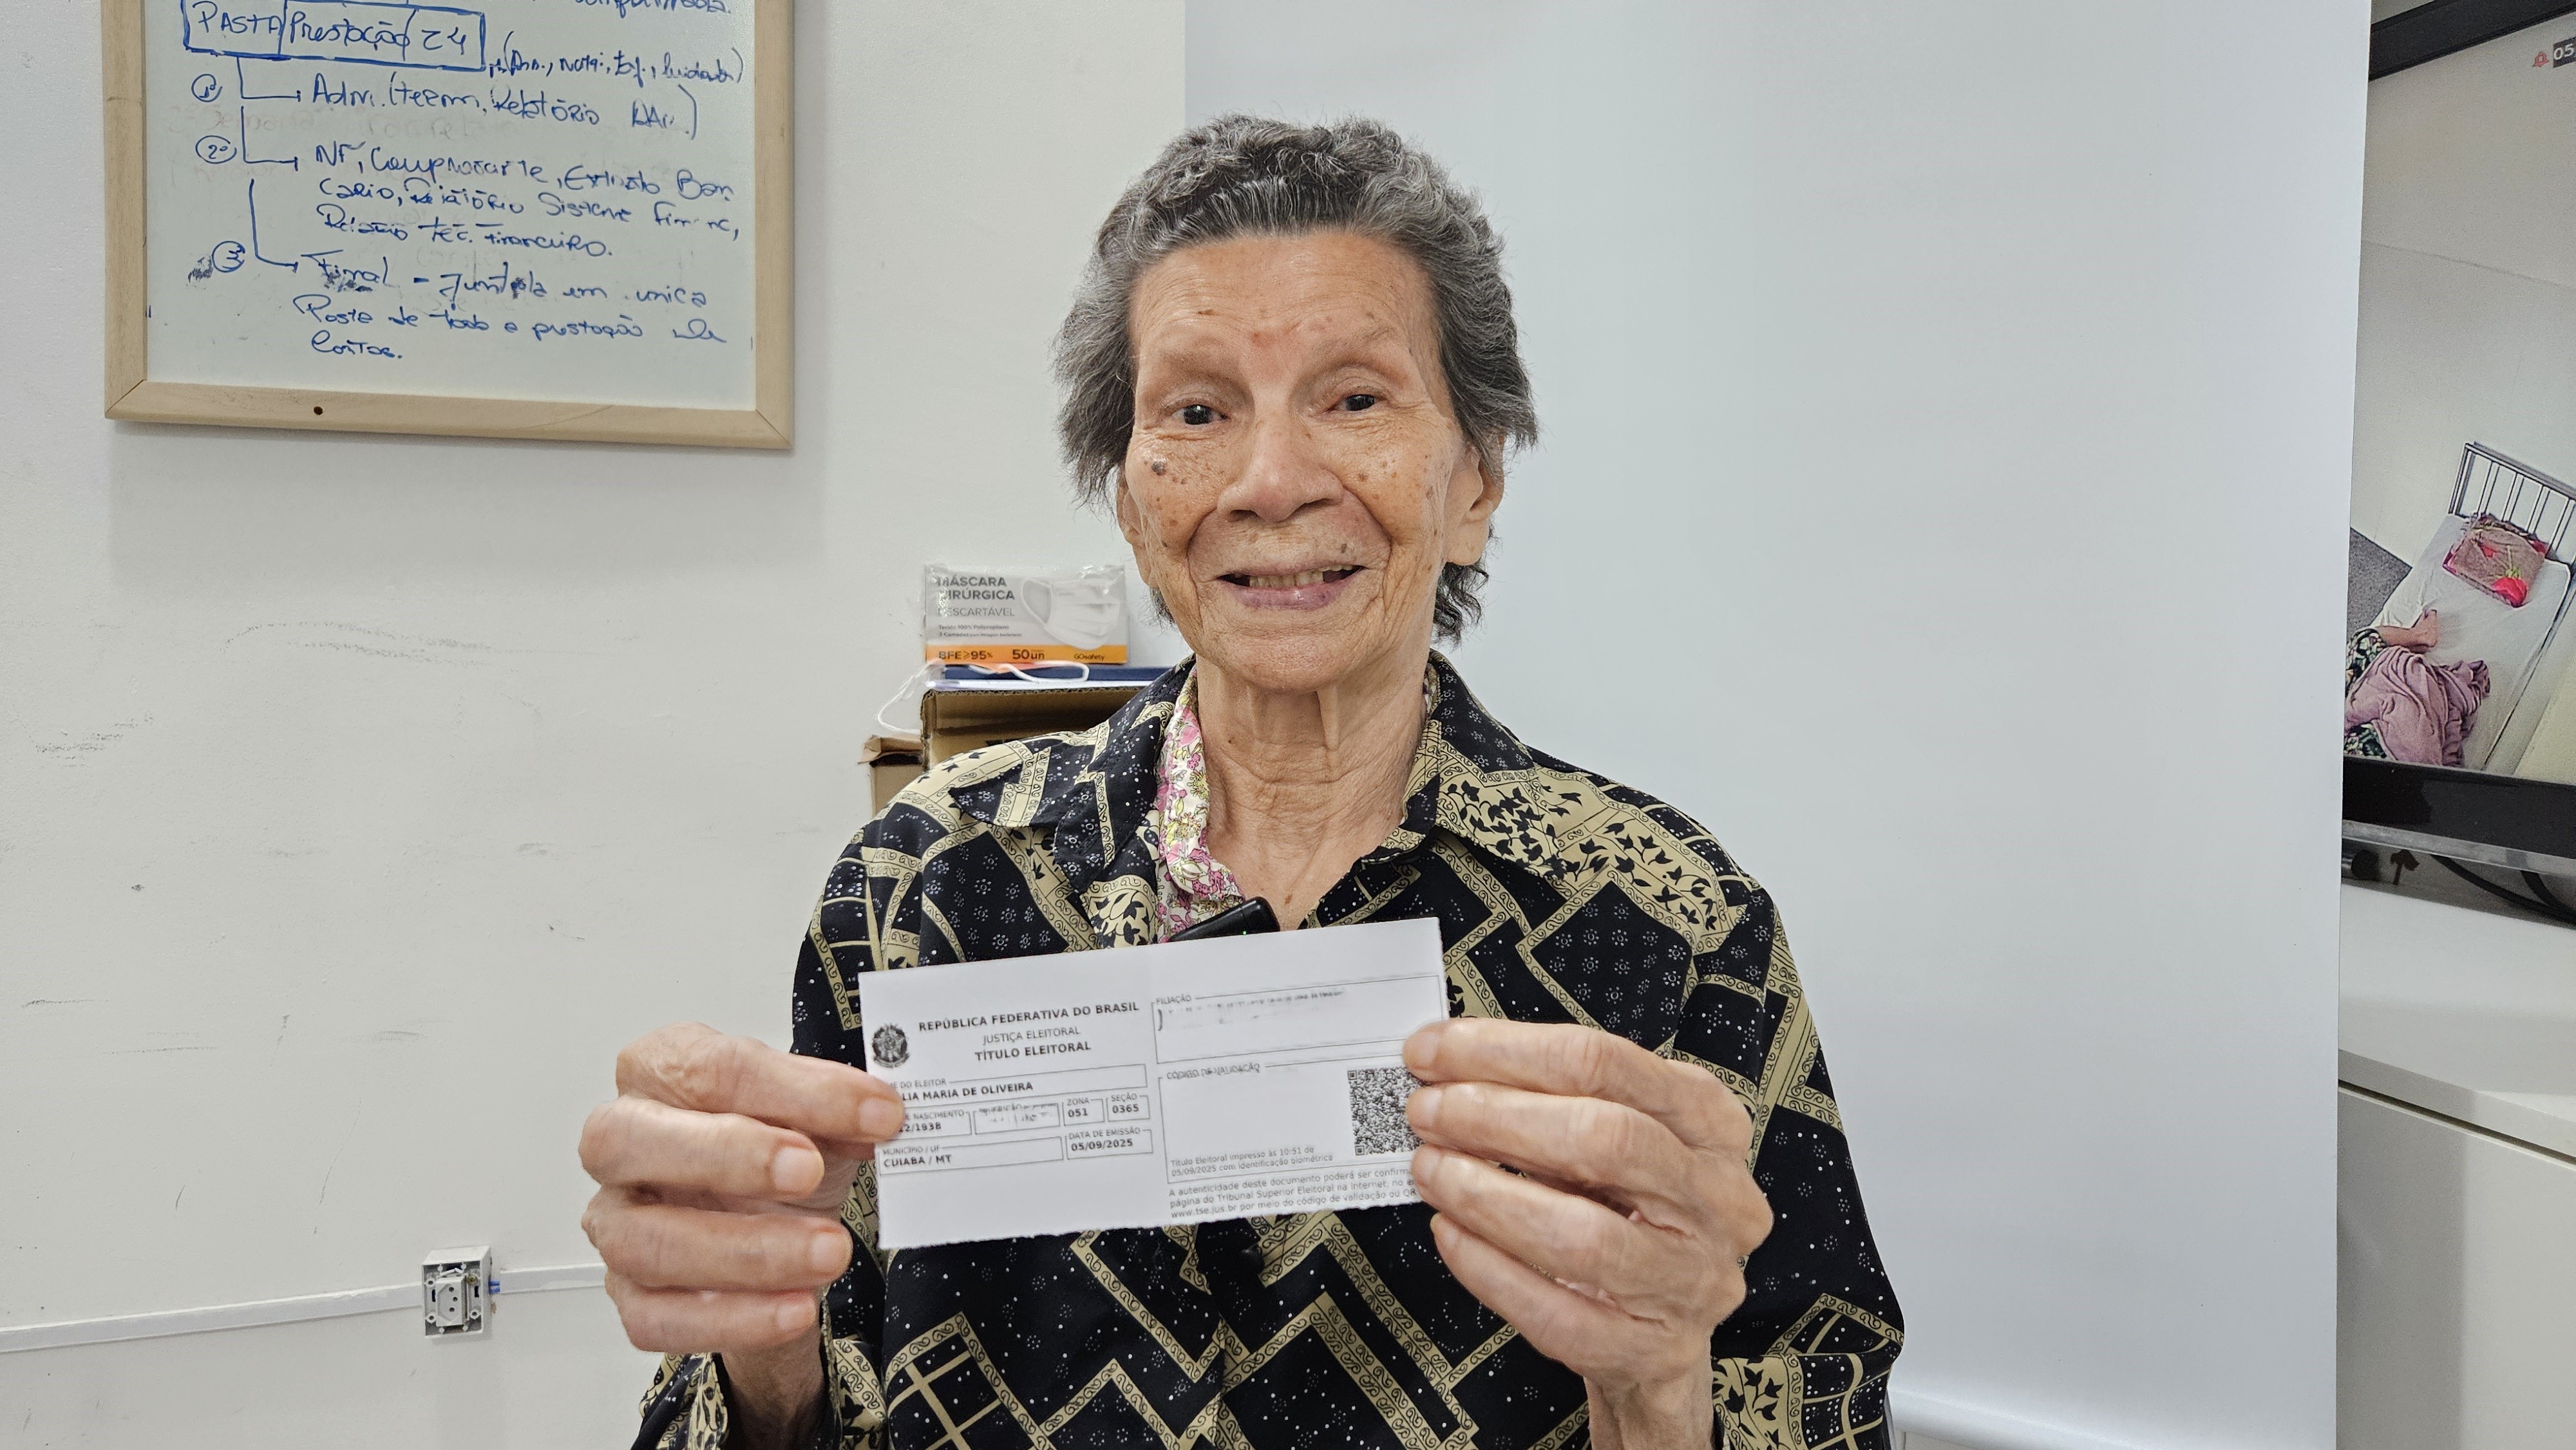 PASTA Prestação 24
1º Adm. (termo, Relatório
2º NF, Comprovante, Extrato Ban
cário, Relatório Sistema financ,
Relatório Tec. Financeiro.
3º Final - em unica
Pasta de toda a prestação de
Contas.
05
MÁSCARA
CIRÚRGICA
DESCARTÁVEL
Tecido 100% Polipropileno
BFE≥95% 50un GOsafety
REPÚBLICA FEDERATIVA DO BRASIL
JUSTIÇA ELEITORAL
TÍTULO ELEITORAL
DO ELEITOR
LIA MARIA DE OLIVEIRA
NASCIMENTO ZONA SEÇÃO
12/1938 051 0365
MUNICÍPIO / UF DATA DE EMISSÃO
CUIABA / MT 05/09/2025
FILIAÇÃO
CÓDIGO DE VALIDAÇÃO
Título Eleitoral impresso às 10:51 de
05/09/2025 com identificação biométrica
A autenticidade deste documento poderá ser confirm
página do Tribunal Superior Eleitoral na Internet, no
www.tse.jus.br por meio do código de validação ou